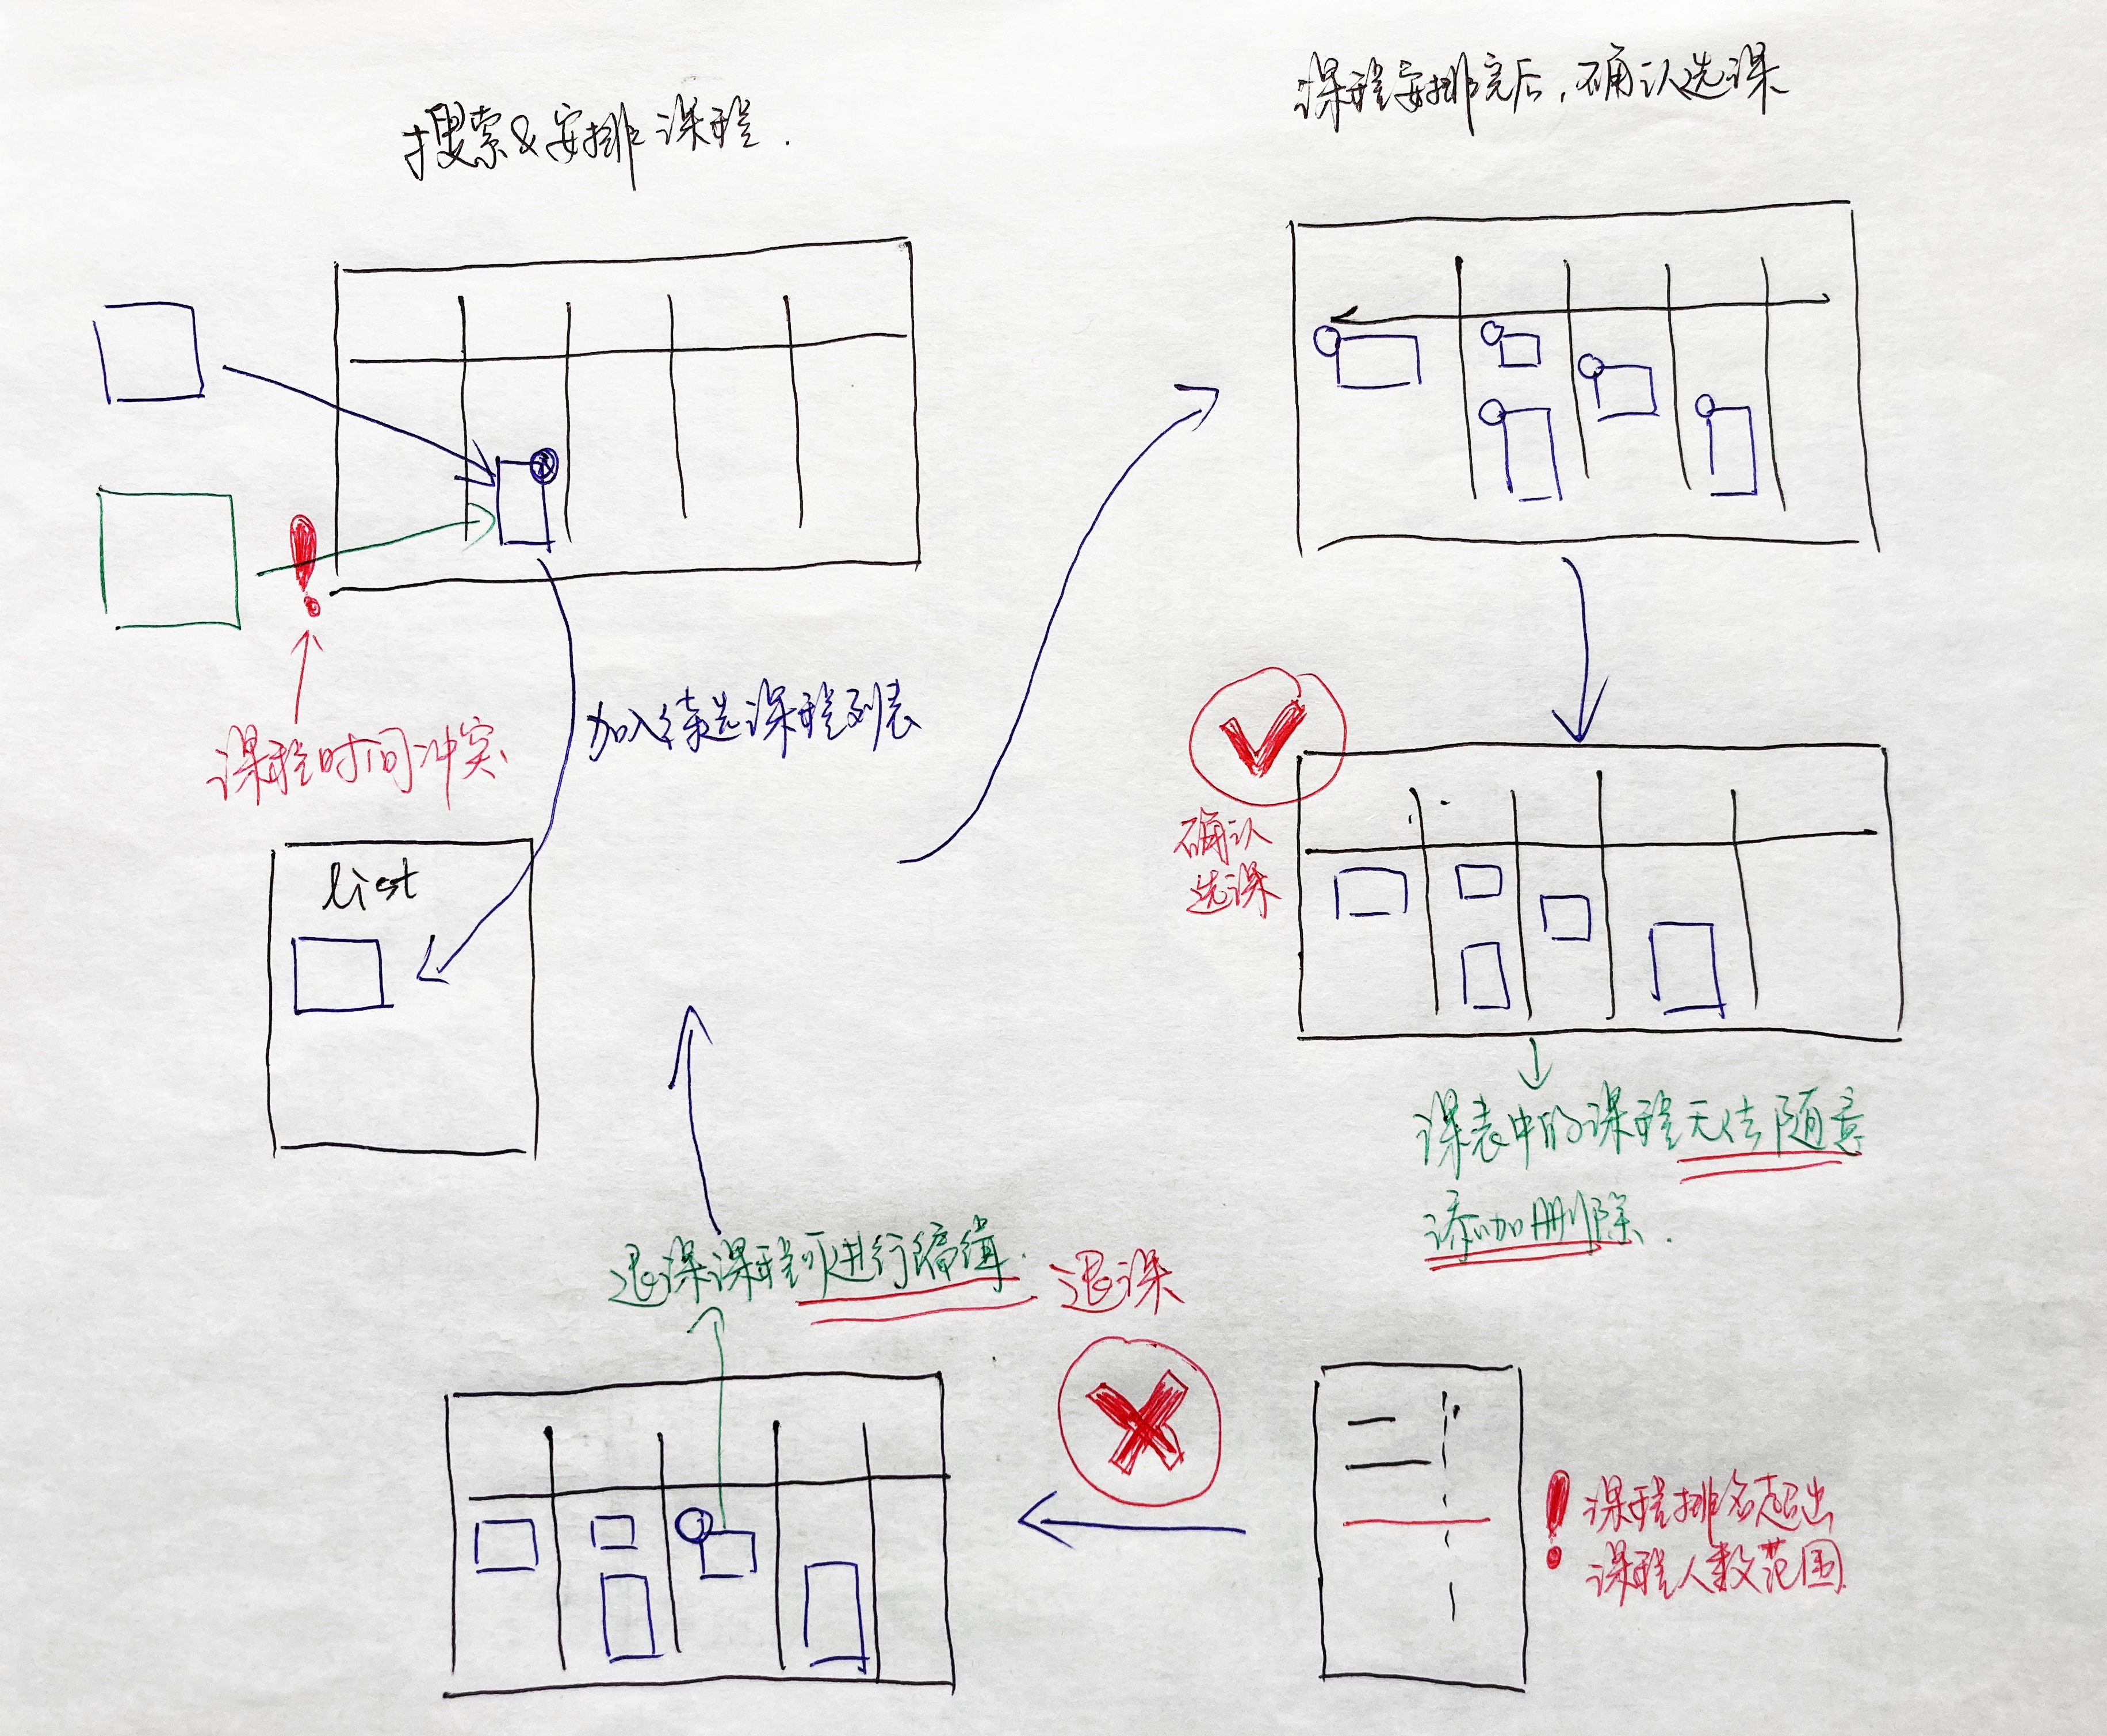 搜索&安排课程.
课程安排完后,确认选课
课程时间冲突
加入待选课程列表
list
确认
选课
课表中的课程无法随意
添加删除.
退课课程可进行编辑.
退课
课程排名超出
课程人数范围